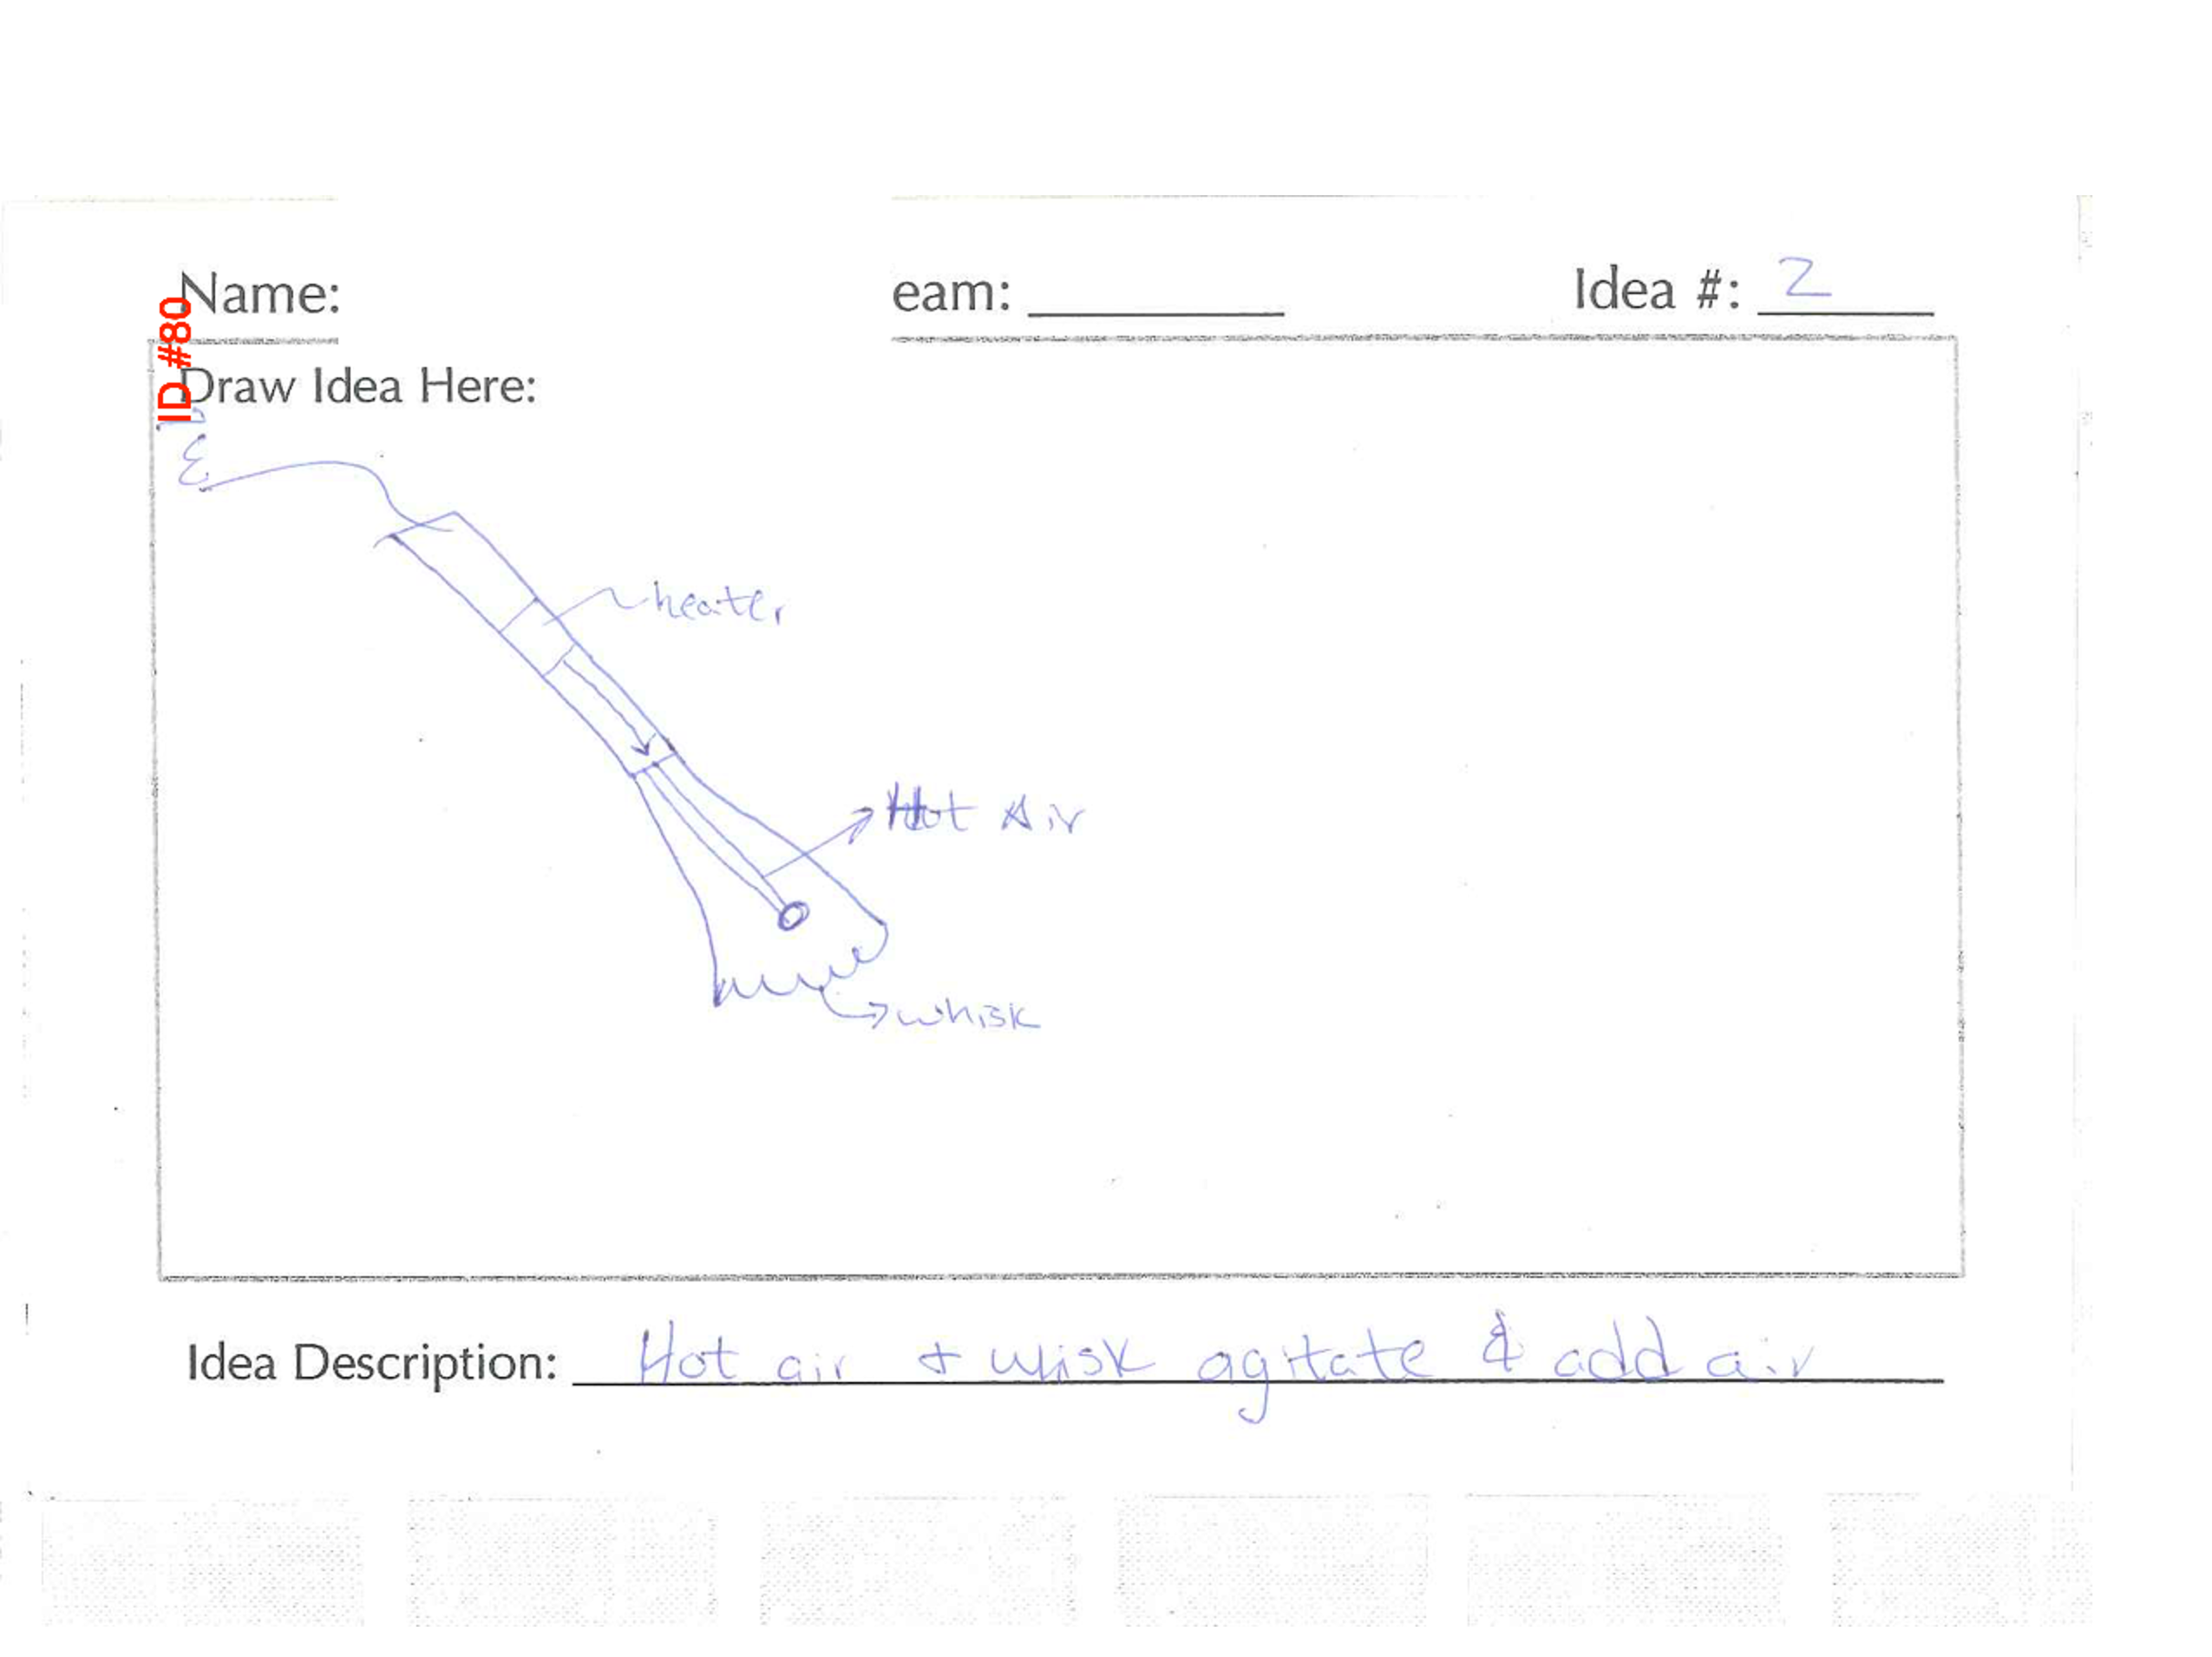 Name: eam: Idea #: 2
ID #80
Draw Idea Here:
heater
Hot Air
whisk
Idea Description: Hot air + whisk agitate & add air